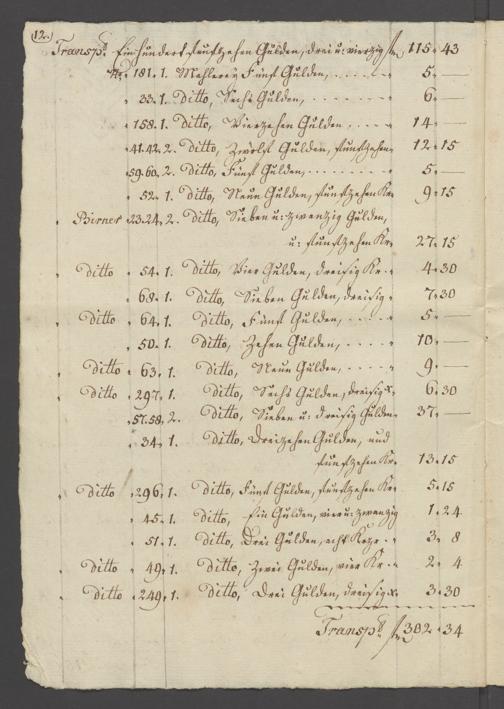 12.
Transpt. Ein hundert fünfzehen Gulden, drei u: vierzig f. 115. 43
Nr. 181. 1. Mahlerey Fünf Gulden, . . . . . . . 5. —
" 33. 1. Ditto, Sechs Gulden, . . . . . . . 6. —
" 158. 1. Ditto, Vierzehen Gulden . . . . . 14. —
" 41. 42. 2. Ditto, Zwölf Gulden, fünfzehen " 12. 15
" 59. 60. 2. Ditto, Fünf Gulden, . . . . . . . 5. —
" 52. 1. Ditto, Neun Gulden, fünfzehen Kr. 9. 15
" Birner " 23. 24. 2. Ditto, Sieben u: zwenzig Gulden,
u: fünfzehen Kr. 27. 15
" Ditto " 54. 1. Ditto, Vier Gulden, dreisig Kr. " 4. 30
" 68. 1. Ditto, Sieben Gulden, dreisig " 7. 30
" Ditto " 64. 1. Ditto, Fünf Gulden, . . . . . 5. —
" 50. 1. Ditto, Zehen Gulden, . . . . . 10. —
" Ditto " 63. 1. Ditto, Neun Gulden, . . . . . 9. —
" Ditto " 297. 1. Ditto, Sechs Gulden, dreisig x. 6. 30
" 57. 58. 2. Ditto, Sieben u: dreisig Gulden 37. —
" 34. 1. Ditto, Dreizehen Gulden, und
fünfzehen Kr. 13. 15
" Ditto " 296. 1. Ditto, Fünf Gulden, fünfzehen Kr. 5. 15
" 45. 1. Ditto, Ein Gulden, vier u: zwanzig 1. 24
" 51. 1. Ditto, Drei Gulden, acht Krzr. " 3. 8
" Ditto " 49. 1. Ditto, Zwei Gulden, vier Kr. " 2. 4
" Ditto " 249. 1. Ditto, Drei Gulden, dreisig x. 3. 30
Transpt. f. 302. 34